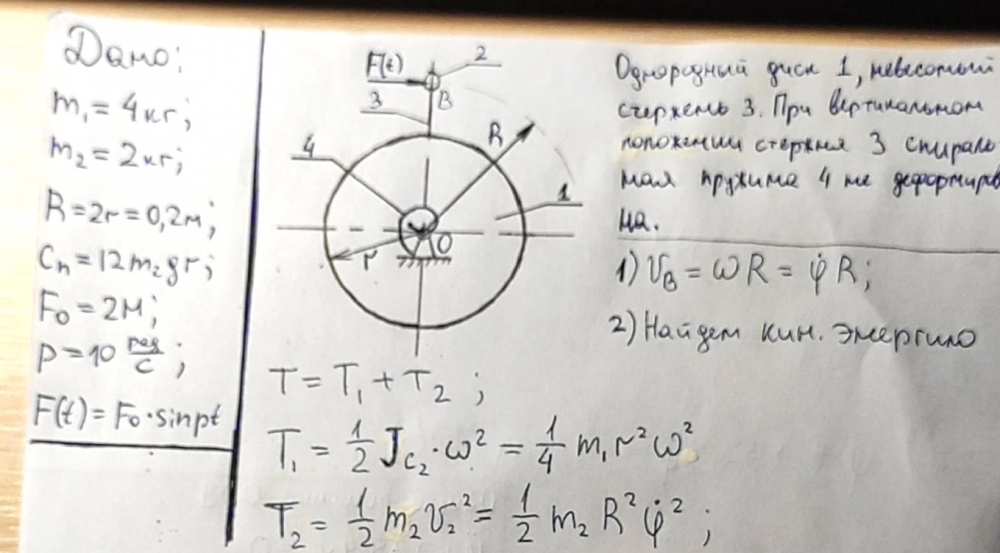 Дано:
m₁ = 4кг;
m₂ = 2кг;
R = 2r = 0,2м;
Cп = 12m₂gr;
F₀ = 2Н;
p = 10 рад/с;
F(t) = F₀·sinpt
F(t)
2
B
3
4
R
1
O
r
Однородный диск 1, невесомый
стержень 3. При вертикальном
положении стержня 3 спираль
ная пружина 4 не деформиров
на.
1) VB = ωR = φ̇R;
2) Найдем кин. энергию
T = T₁ + T₂ ;
T₁ = 1/2 J_C₂·ω² = 1/4 m₁r²ω²
T₂ = 1/2 m₂V₂² = 1/2 m₂R²φ̇² ;